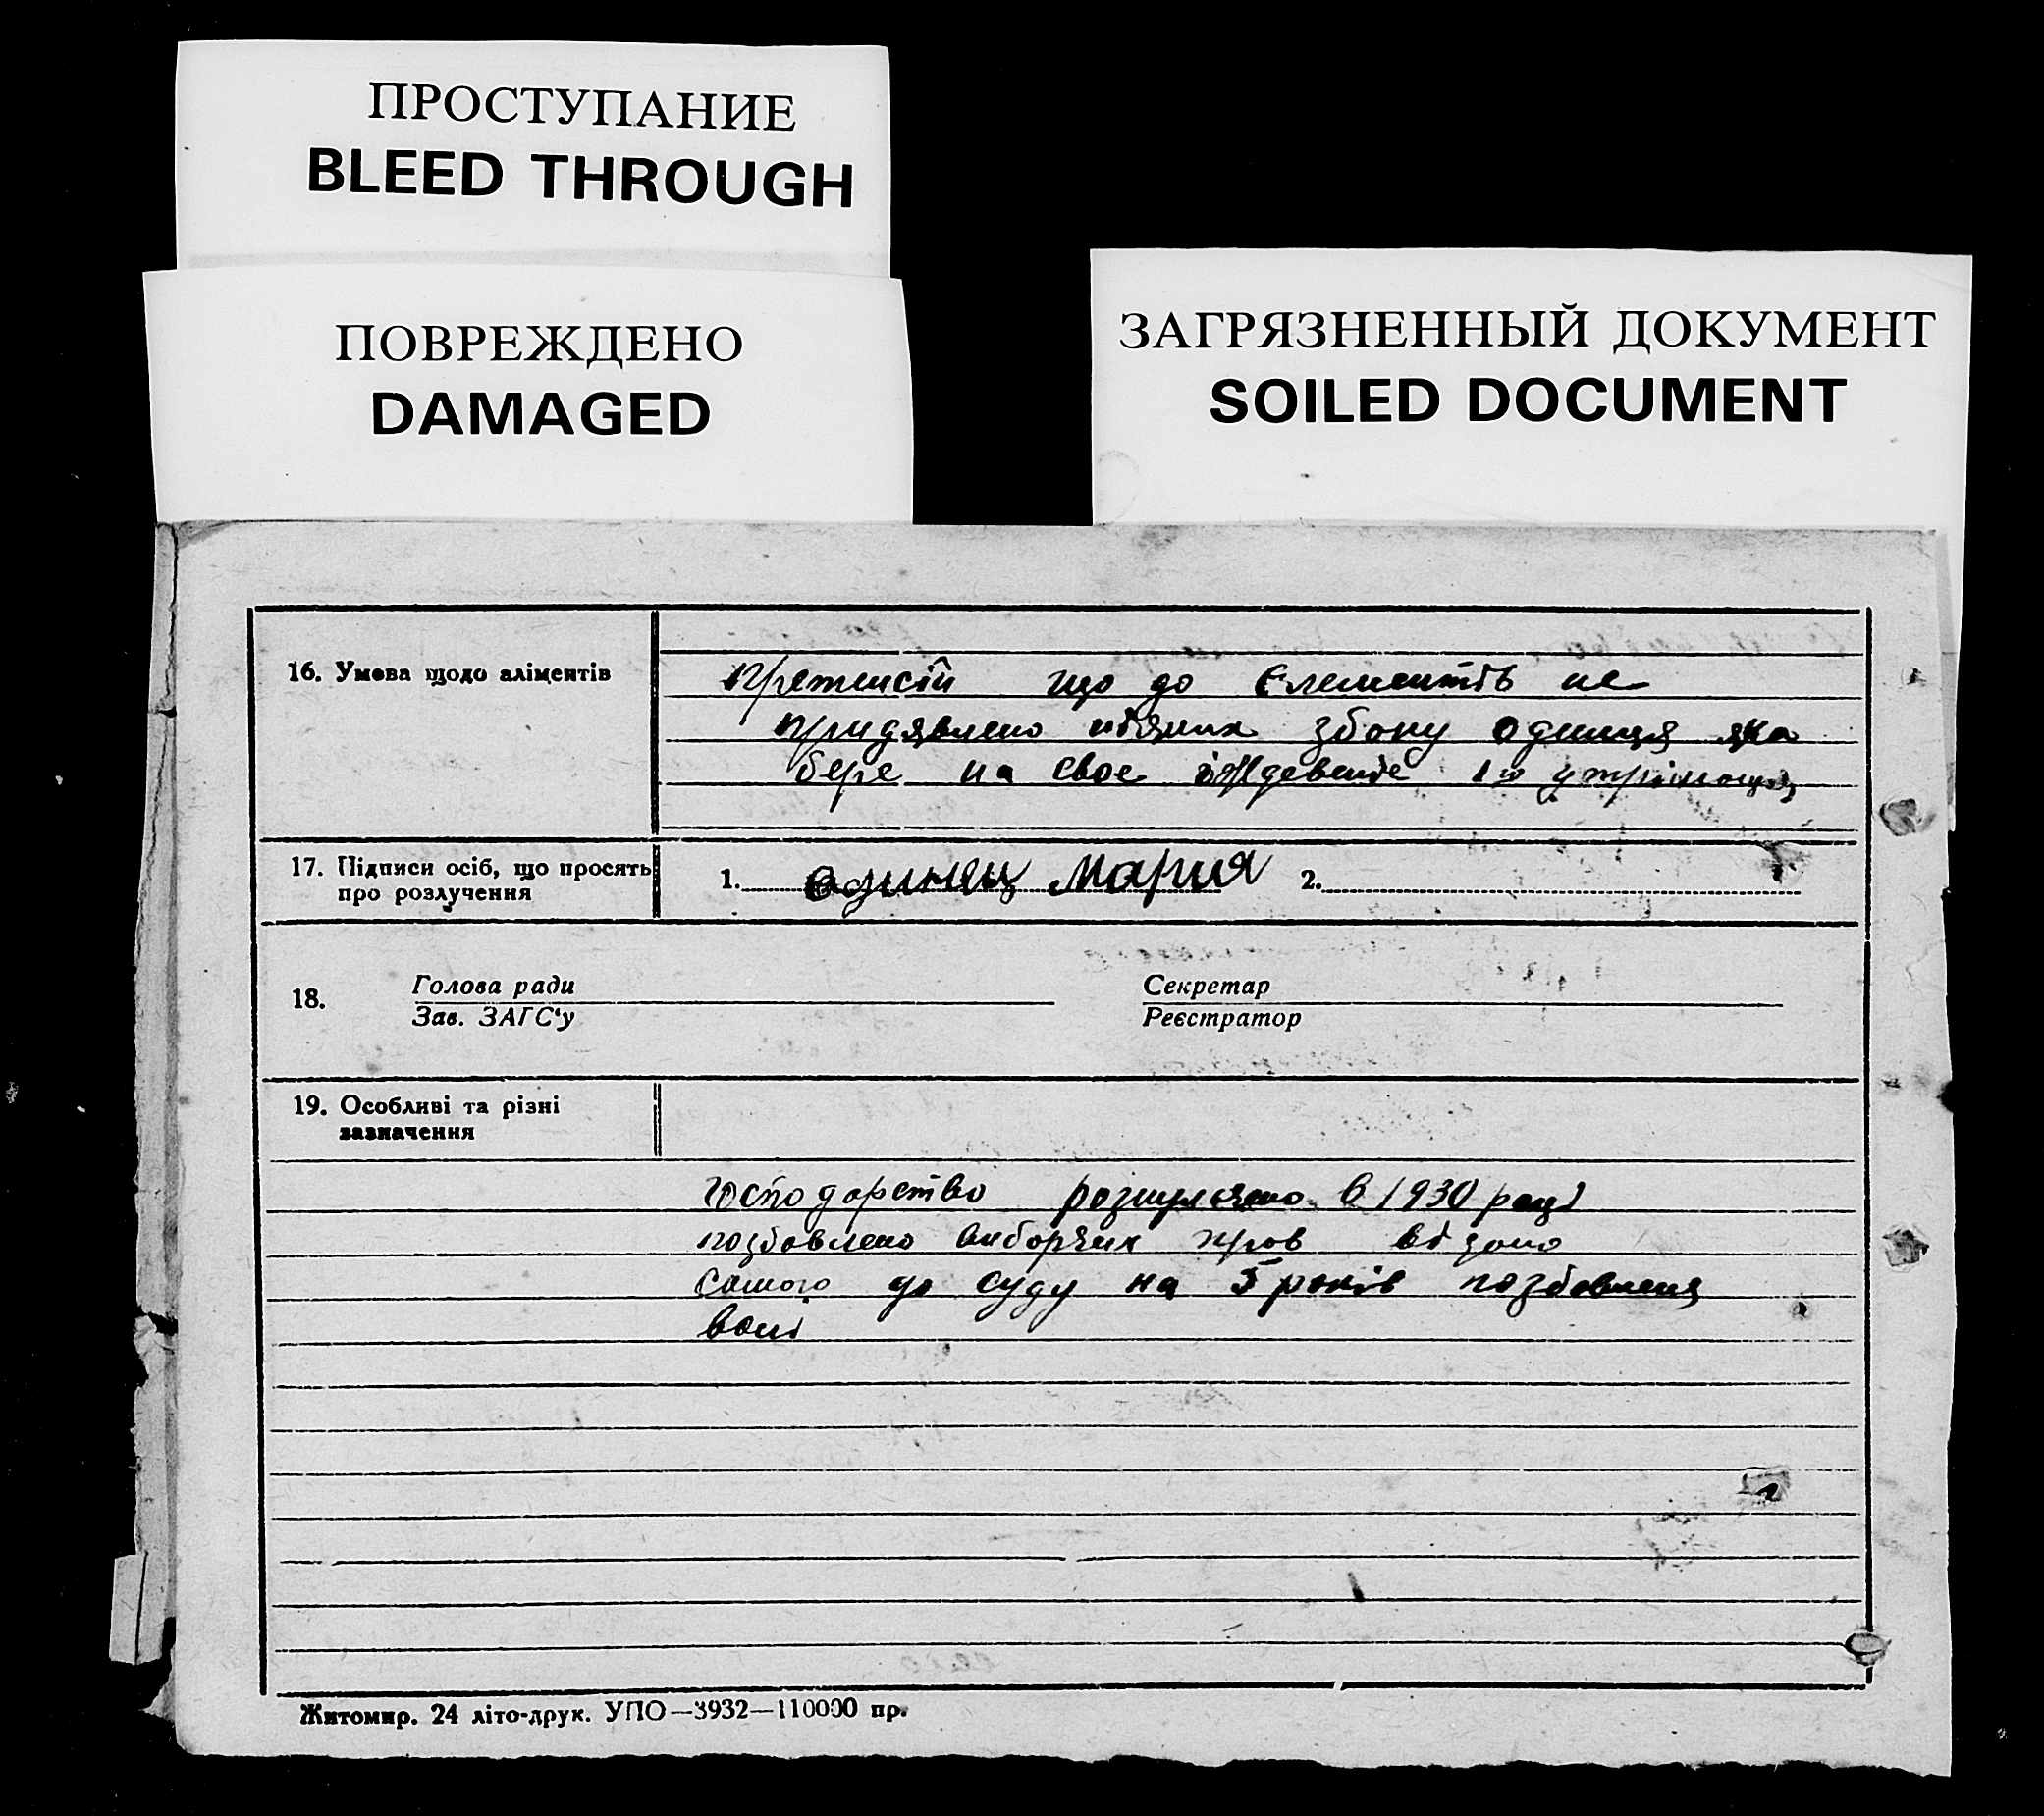 ПРОСТУПАНИЕ
BLEED THROUGH
ПОВРЕЖДЕНО
DAMAGED
ЗАГРЯЗНЕННЫЙ ДОКУМЕНТ
SOILED DOCUMENT
16. Умова щодо аліментів
претенсій що до Єлементів не
придявлено ніяких збоку одинця яка
бере на своє 1го
17. Підписи осіб, що просять
про розлучення
1. одинец Мария 2.
18. Голова ради Секретар
Зав. ЗАГС'у Реєстратор
19. Особливі та різні
зазначення
господарство в 1930 році
позбавлено виборчих пров
самого до суду на 5 років позбавленя
волі
Житомир. 24 літо-друк. УПО—3932—110000 пр.